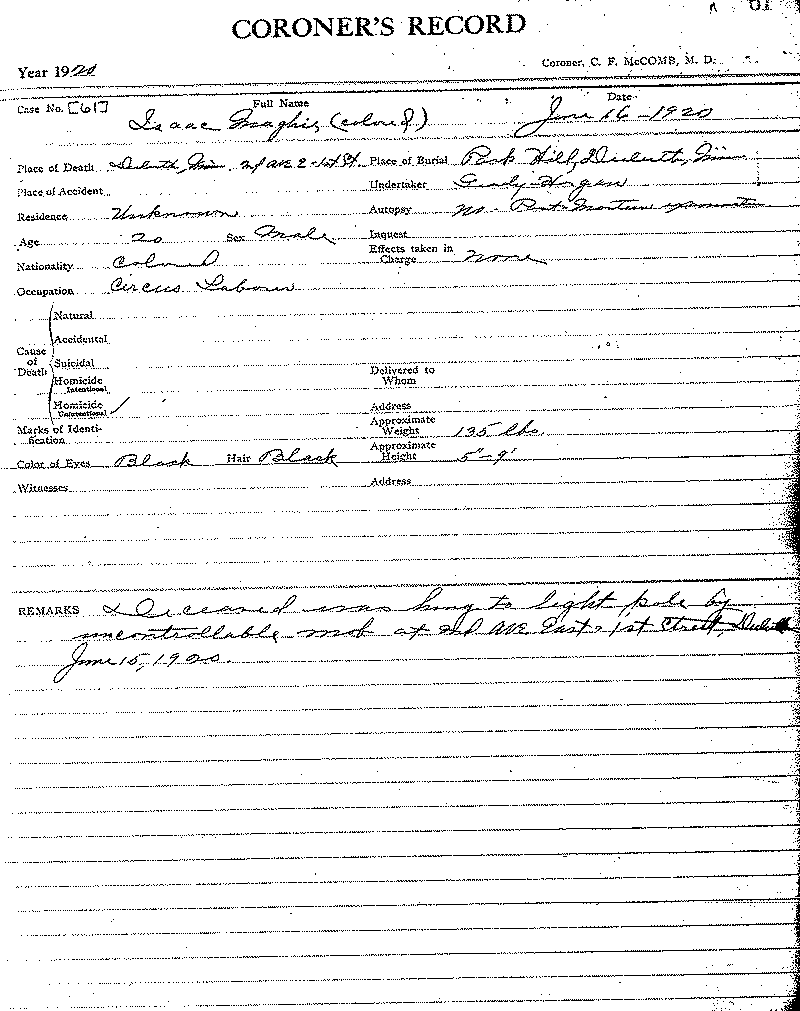 CORONER'S RECORD
Year 1920 Coroner, C. F. McCOMB, M. D.
Case No. [61] Full Name Date
Isaac Maghie (colored) June 16-1920
Place of Death Duluth, Minn. 2nd Ave E - 1st St. Place of Burial Park Hill, Duluth, Minn
Place of Accident Undertaker Grady-Horgan
Residence Unknown Autopsy no. Post Mortem
Age 20 Sex Male Inquest
Nationality Colored Effects taken in Charge none
Occupation Circus Laborer
Natural
Accidental
Cause of Death Suicidal
Homicide Intentional Delivered to Whom
Homicide Unintentional / Address
Marks of Identification Approximate Weight 135 lbs.
Color of Eyes Black Hair Black Approximate Height 5"-9'
Witnesses Address
REMARKS Deceased was hung to light pole by
uncontrollable mob at 2nd Ave East & 1st Street, Duluth
June 15, 1920.